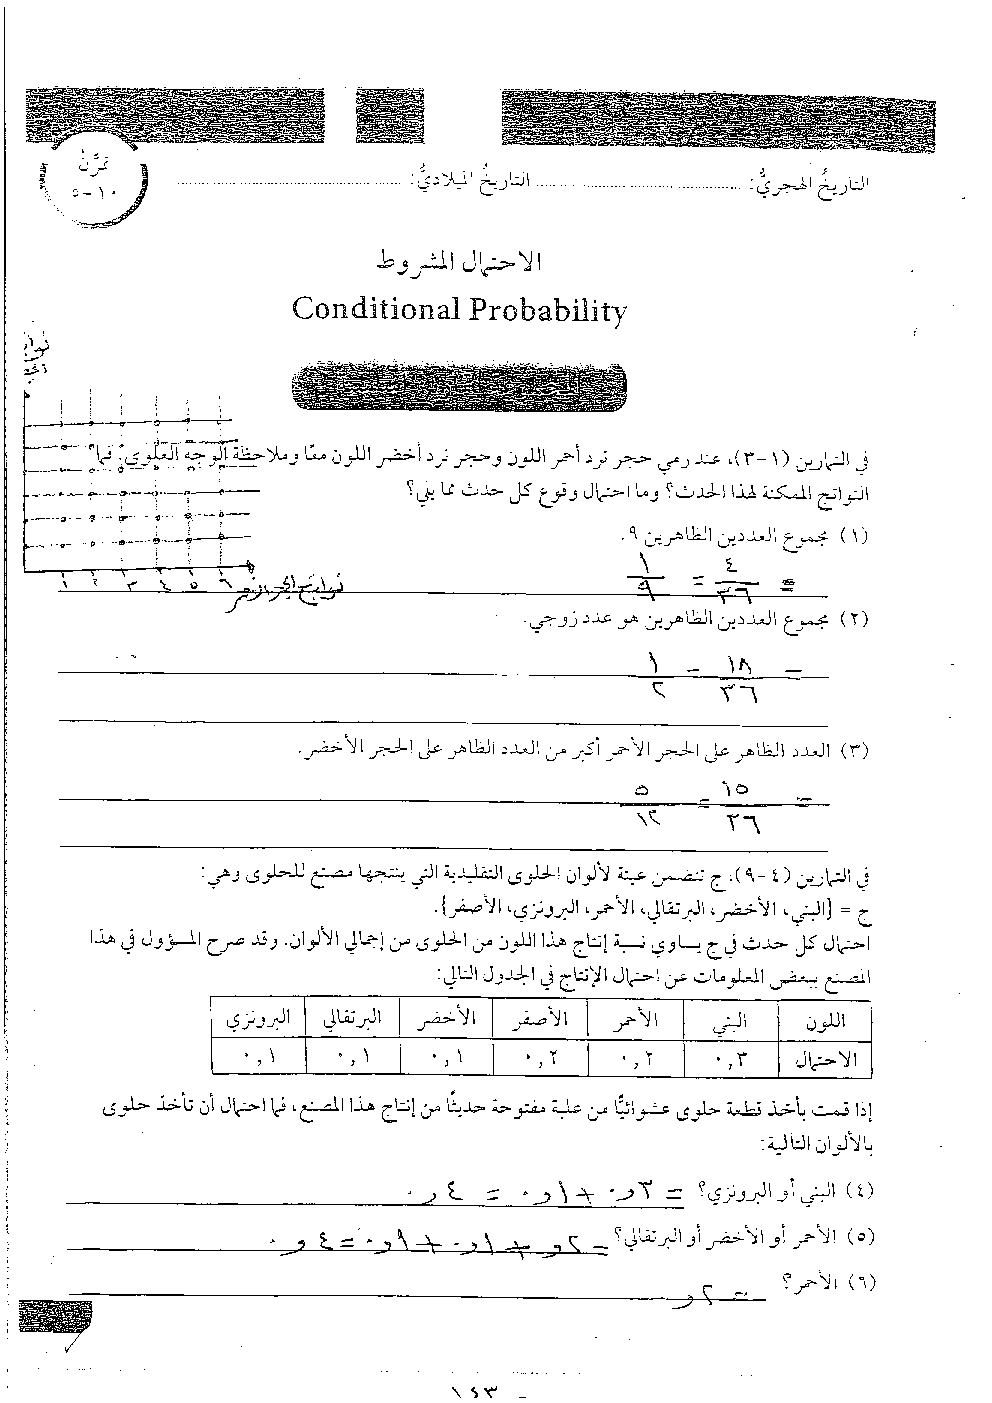 تمرَّنْ
١٠-٥
التاريخُ الهجريُّ: ........................ التاريخُ الميلاديُّ: ........................
الاحتمال المشروط
Conditional Probability
في التمارين (١-٣)، عند رمي حجر نرد أحمر اللون وحجر نرد أخضر اللون معًا وملاحظة الوجه العلوي: فما
النواتج الممكنة لهذا الحدث؟ وما احتمال وقوع كل حدث مما يلي؟
(١) مجموع العددين الظاهرين ٩.
= ٤/٣٦ = ١/٩
١ ٢ ٣ ٤ ٥ ٦
(٢) مجموع العددين الظاهرين هو عدد زوجي.
= ١٨/٣٦ = ١/٢
(٣) العدد الظاهر على الحجر الأحمر أكبر من العدد الظاهر على الحجر الأخضر.
= ١٥/٣٦ = ٥/١٢
في التمارين (٤-٩)، ج تتضمن عينة لألوان الحلوى التقليدية التي ينتجها مصنع للحلوى وهي:
ج = {البني، الأخضر، البرتقالي، الأحمر، البرونزي، الأصفر}.
احتمال كل حدث في ج يساوي نسبة إنتاج هذا اللون من الحلوى من إجمالي الألوان. وقد صرح المسؤول في هذا
المصنع ببعض المعلومات عن احتمال الإنتاج في الجدول التالي:
اللون البني الأحمر الأصفر الأخضر البرتقالي البرونزي
الاحتمال ٠,٣ ٠,٢ ٠,٢ ٠,١ ٠,١ ٠,١
إذا قمت بأخذ قطعة حلوى عشوائيًّا من علبة مفتوحة حديثًا من إنتاج هذا المصنع، فما احتمال أن تأخذ حلوى
بالألوان التالية:
(٤) البني أو البرونزي؟ = ٠,٣ + ٠,١ = ٠,٤
(٥) الأحمر أو الأخضر أو البرتقالي؟ = ٠,٢ + ٠,١ + ٠,١ = ٠,٤
(٦) الأحمر؟ = ٠,٢
١٤٣